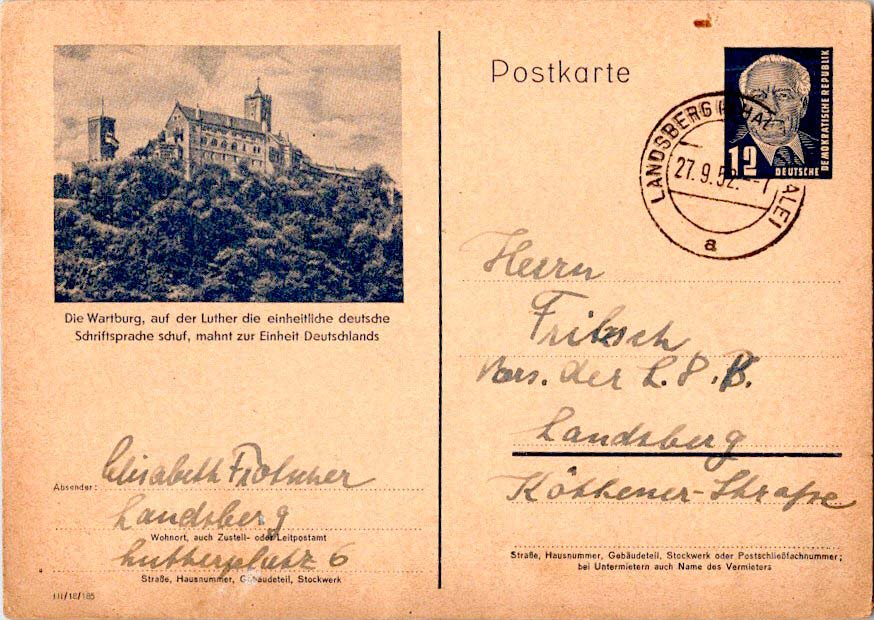 Postkarte
12
DEUTSCHE
DEMOKRATISCHE REPUBLIK
LANDSBERG
27.9.52.
a
Die Wartburg, auf der Luther die einheitliche deutsche
Schriftsprache schuf, mahnt zur Einheit Deutschlands
Herrn
Vors. der L.P.B.
Landsberg
Köthener-Straße
Straße, Hausnummer, Gebäudeteil, Stockwerk oder Postschließfachnummer;
bei Untermietern auch Name des Vermieters
Absender: Elisabeth
Landsberg
Wohnort, auch Zustell- oder Leitpostamt
Lutherplatz 6
Straße, Hausnummer, Gebäudeteil, Stockwerk
III/18/185